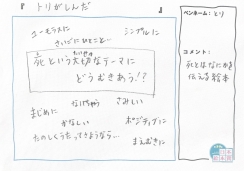 『トリがしんだ』
ユーモラスに
シンプルに
さいごにひとこと…
『死という大切なテーマに
どうむきあう!?』
し
たいせつ
まじめに
なげやり
さみしい
かなしい
ポジティブに
たのしくうたってさようなら…
まえむきに
ペンネーム:とり
コメント:
死とはなにかを
伝える絵本